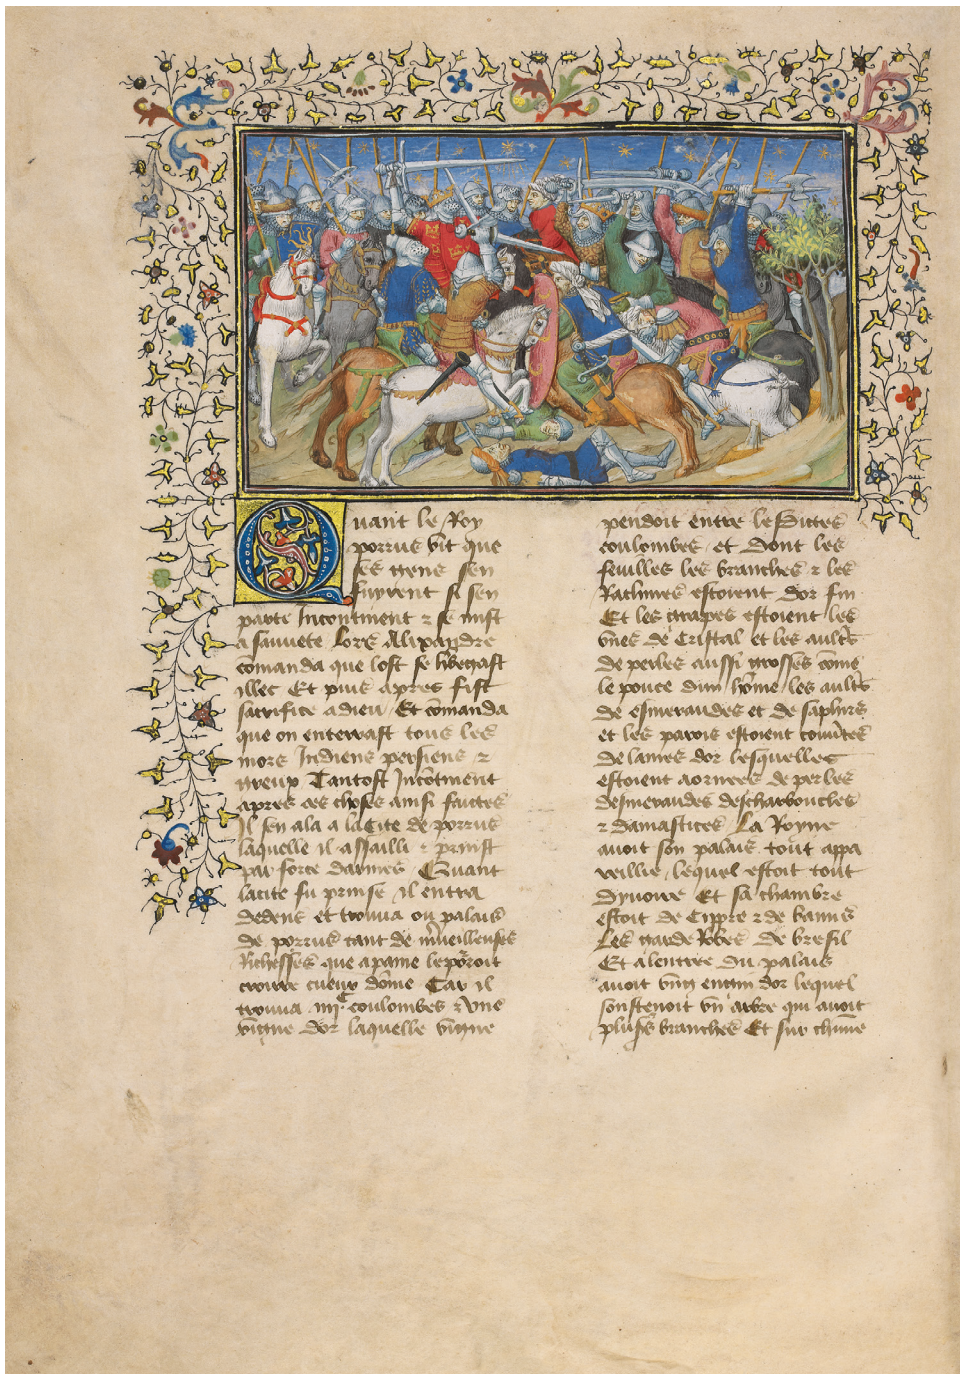 Quant le Roy
porrus vit que
ses gens sen
fuyrent si sen
party Incontinent & se mist
a sauuete Lors Alixandre
cōmanda que lost se hbegast
illec Et puis apres fist
sacrifice a dieu Et cōmanda
que on enterrast tous les
mors Indiens persiens &
grieux Tantost Incōtinent
apres ces choses ainsi faictes
Il sen ala a la Cite de porrus
laquelle il assailli & prinst
par force darmes Quant
lacite fu prinse il entra
dedens et trouua ou palais
de porrus tant de mueilleuses
Richesses que apaine le poroit
croirre cueur dōme Car il
trouua .iiijc coulombes & vne
vigne dor laquelle vigne
pendoit entre les dittes
coulombes et dont les
feuilles les branches & les
Rachines estoient dor fin
Et les grapes estoient les
vnes de Cristal et les aultrs
de perles aussi grosses cōme
le pouce dun hōme les aultrs
de esmeraudes et de saphirs
et les parois estoient couūtes
de lames dor lesquelles
estoient aornees de perles
desmeraudes descharboucles
& damastices La Royne
auoit son palais tout appa
reillie lequel estoit tout
dyuoire Et sa chambre
estoit de Cipre & de banus
Les garde Robes de bresil
Et alentree du palais
auoit vng engin dor lequel
soustenoit vn arbre qui auoit
plusrs branches Et sur chūne